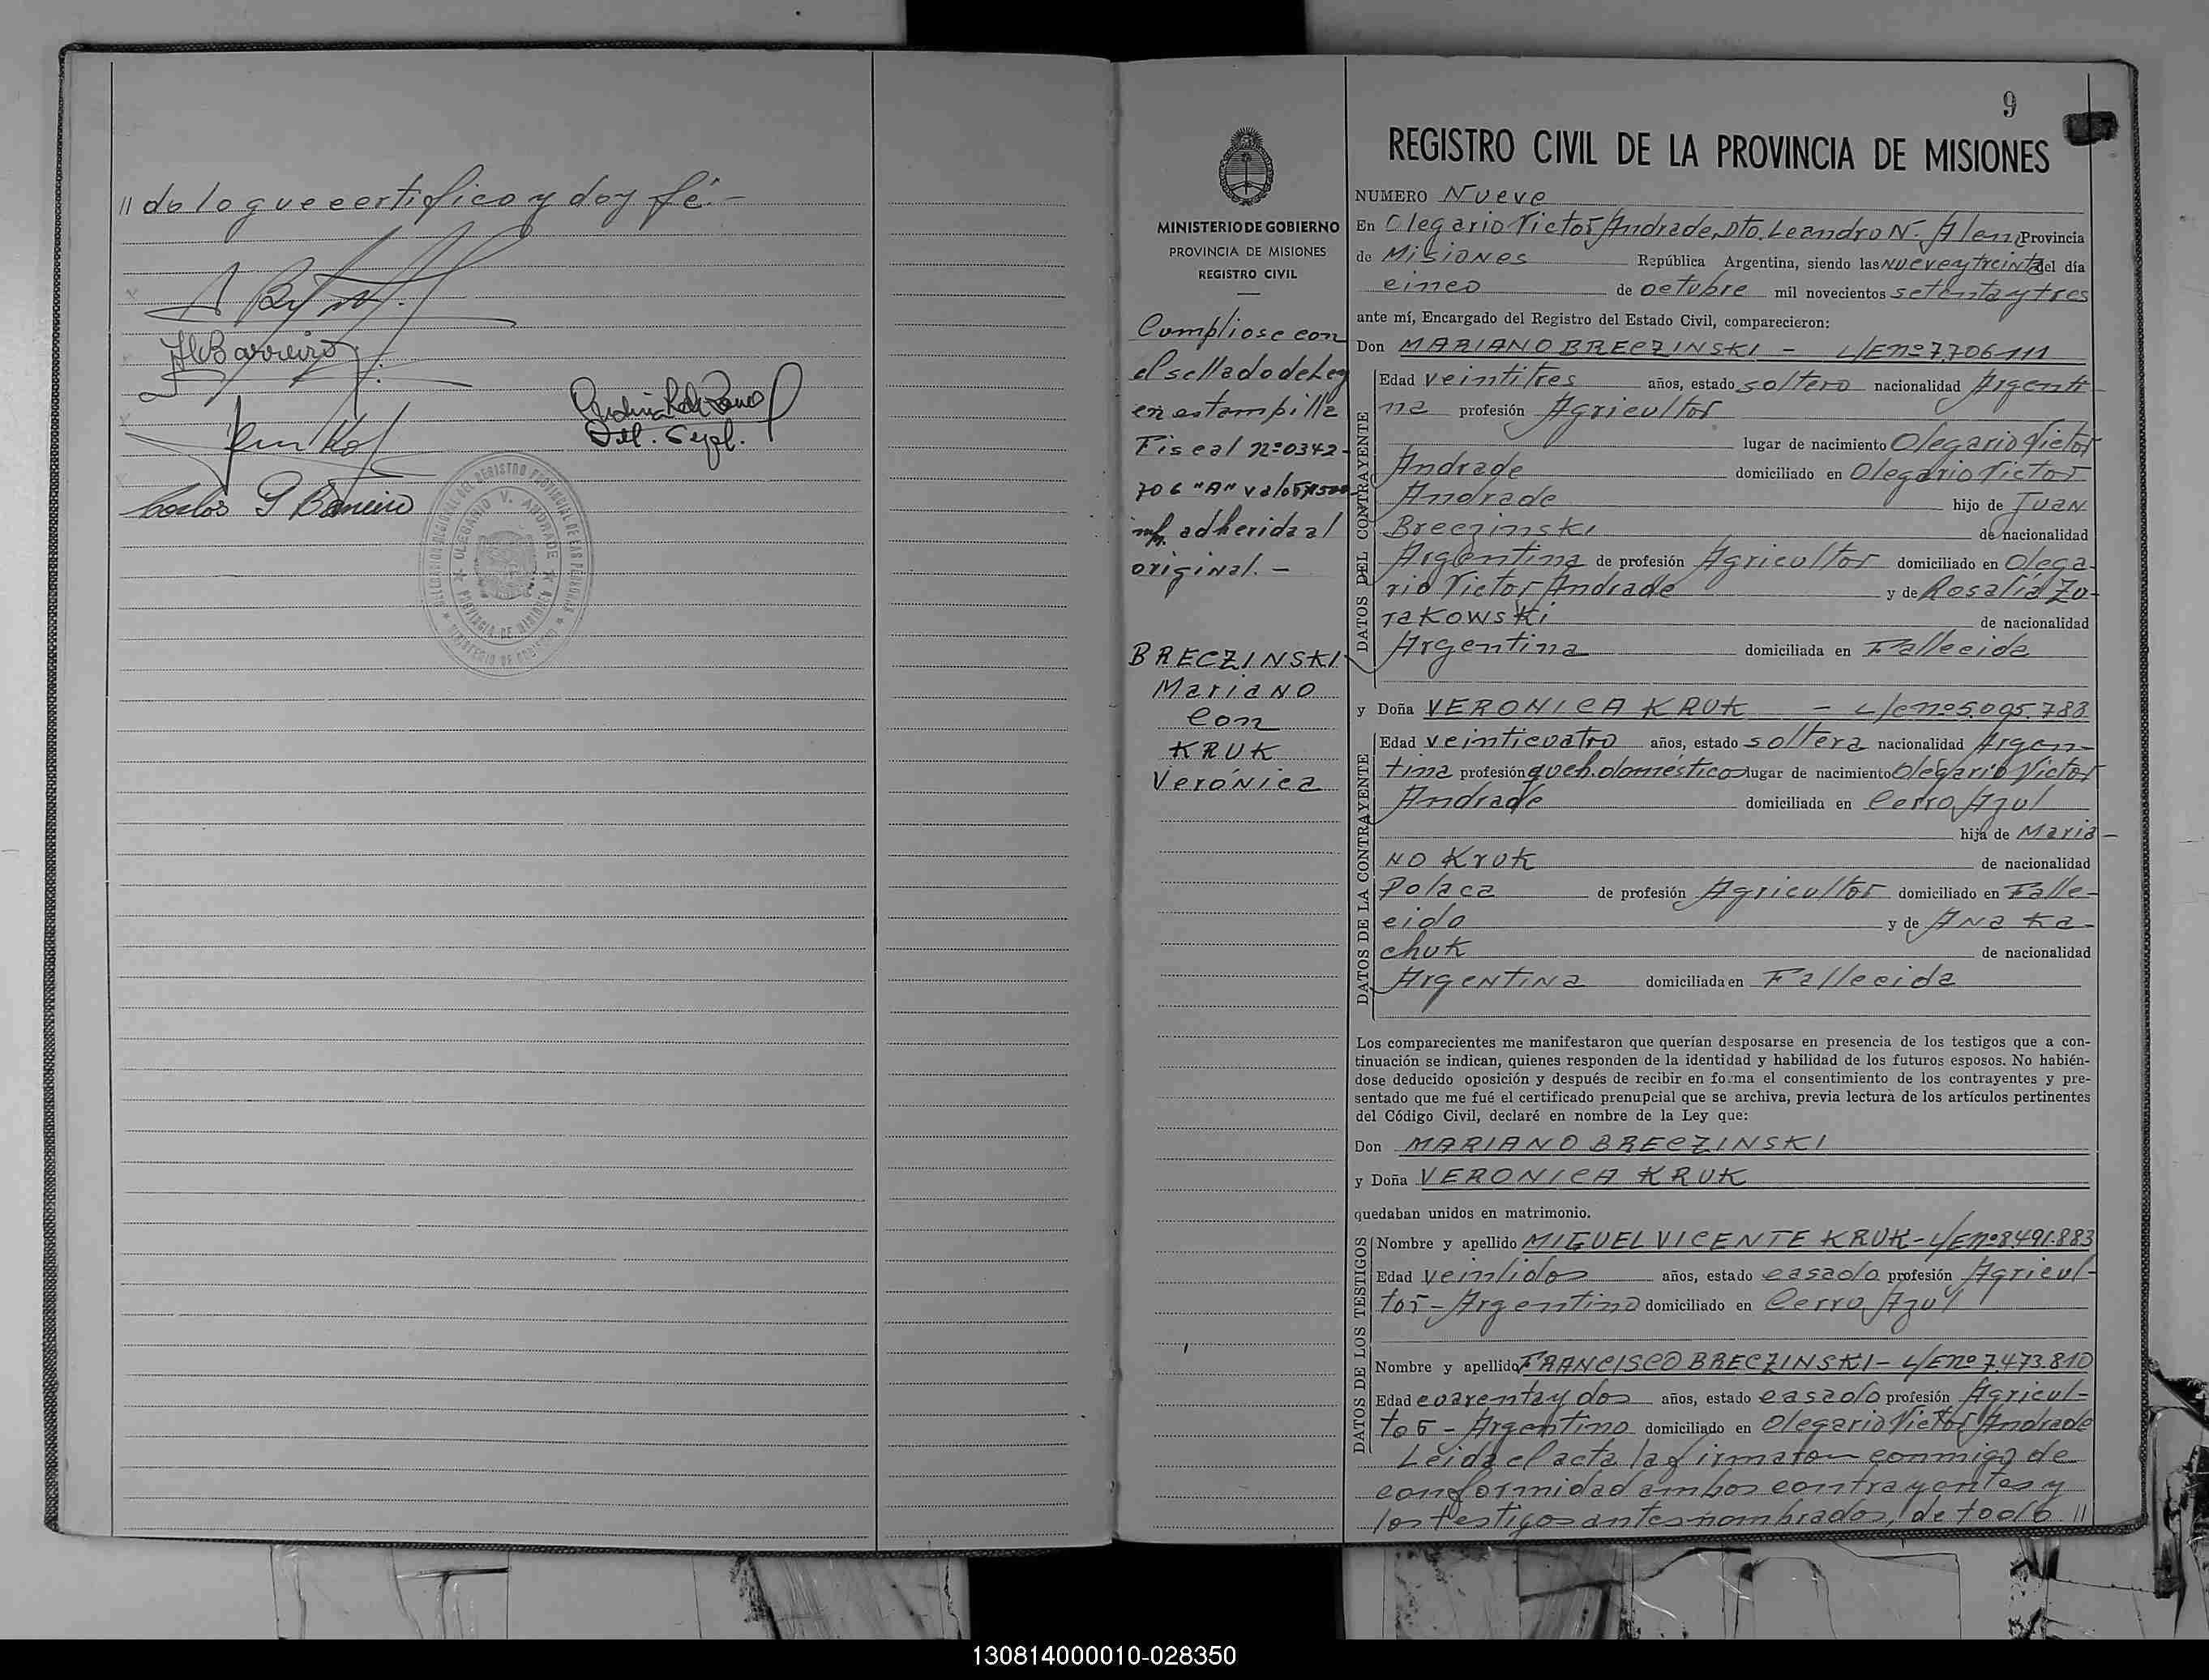 // de lo que certifico y doy fé.-
Carlos
Del. Sup.
9
REGISTRO CIVIL DE LA PROVINCIA DE MISIONES
MINISTERIO DE GOBIERNO
PROVINCIA DE MISIONES
REGISTRO CIVIL
Cumpliose con
el sellado de Ley
en estampilla
Fiscal nº 0342-
706 "A" valor $500
adherida al
original.-
BRECZINSKI
Mariano
Con
KRUK
Verónica
NUMERO Nueve
En Olegario Victor Andrade, Dto. Leandro N. Alem, Provincia
de Misiones República Argentina, siendo las nueve y treinta del día
cinco de octubre mil novecientos setenta y tres
ante mí, Encargado del Registro del Estado Civil, comparecieron:
Don MARIANO BRECZINSKI - L/E nº 7.706.111
DATOS DEL CONTRAYENTE
Edad veintitres años, estado soltero nacionalidad Argenti-
na profesión Agricultor
lugar de nacimiento Olegario Victor
Andrade domiciliado en Olegario Victor
Andrade hijo de Juan
Breczinski de nacionalidad
Argentina de profesión Agricultor domiciliado en Olega-
rio Victor Andrade y de Rosalía Zu-
rakowski de nacionalidad
Argentina domiciliada en Fallecida
y Doña VERONICA KRUK - L/C nº 5.095.783
DATOS DE LA CONTRAYENTE
Edad veinticuatro años, estado soltera nacionalidad Argen-
tina profesión queh. domésticos lugar de nacimiento Olegario Victor
Andrade domiciliada en Cerro Azul
hija de Maria-
no Kruk de nacionalidad
Polaca de profesión Agricultor domiciliado en Falle-
cido y de Ana Ka-
chuk de nacionalidad
Argentina domiciliada en Fallecida
Los comparecientes me manifestaron que querían desposarse en presencia de los testigos que a con-
tinuación se indican, quienes responden de la identidad y habilidad de los futuros esposos. No habién-
dose deducido oposición y después de recibir en forma el consentimiento de los contrayentes y pre-
sentado que me fué el certificado prenupcial que se archiva, previa lectura de los artículos pertinentes
del Código Civil, declaré en nombre de la Ley que:
Don MARIANO BRECZINSKI
y Doña VERONICA KRUK
quedaban unidos en matrimonio.
DATOS DE LOS TESTIGOS
Nombre y apellido MIGUEL VICENTE KRUK - L/E nº 8.491.883
Edad veintidos años, estado casado profesión Agricul-
tor - Argentino domiciliado en Cerro Azul
Nombre y apellido FRANCISCO BRECZINSKI - L/E nº 7.473.810
Edad cuarenta y dos años, estado casado profesión Agricul-
tor - Argentino domiciliado en Olegario Victor Andrade
Leida el acta la firmaron conmigo de
conformidad ambos contrayentes y
los testigos antes nombrados, de todo //
130814000010-028350